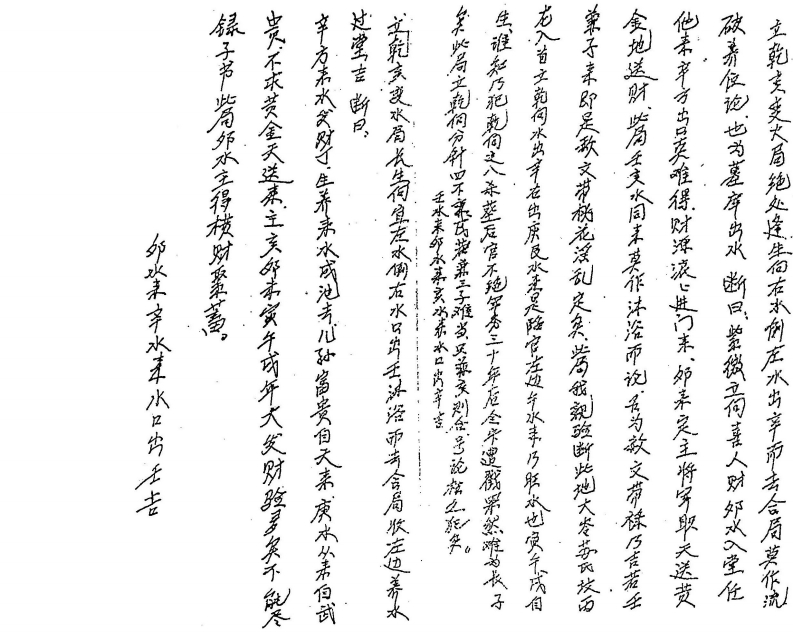 立乾亥变火局绝处逢生向右水倒左水出辛而去合局莫作流
破养位论也为墓库出水断曰紫微立向喜人财卯水入堂任
他来辛方出口英难得财源滚上进门来卯来定主将军职天送黄
金地送财此局壬亥水同来莫作沐浴而论名为救文带禄乃吉若壬
兼子来即是救文带桃花淫乱定矣此局我亲验断此地大岺苏氏坟西
龙入首立乾向水出辛右出庚艮水来是临官左边午水来乃旺水也寅午戌自
生谁知乃犯乾向之八冰墓后官不绝第秀三十年后全家遭戮果然难为长子
矣此局立乾向分针四不兼氏若兼三子难当只兼亥则合号论檐之死矣。
壬水来卯水来亥水未水口出辛吉
立乾亥变水局长生向宜左水倒右水口出壬沐浴而去合局收左边养水
过堂吉断曰。
辛方来水发财丁生养来水成池去儿孙富贵自天来庚水从来自武
贵不求黄金天送来立亥卯未寅午戌年大发财验多矣不能尽
録子书此局卯水主得横财聚蓄。
卯水来辛水来水口出壬吉